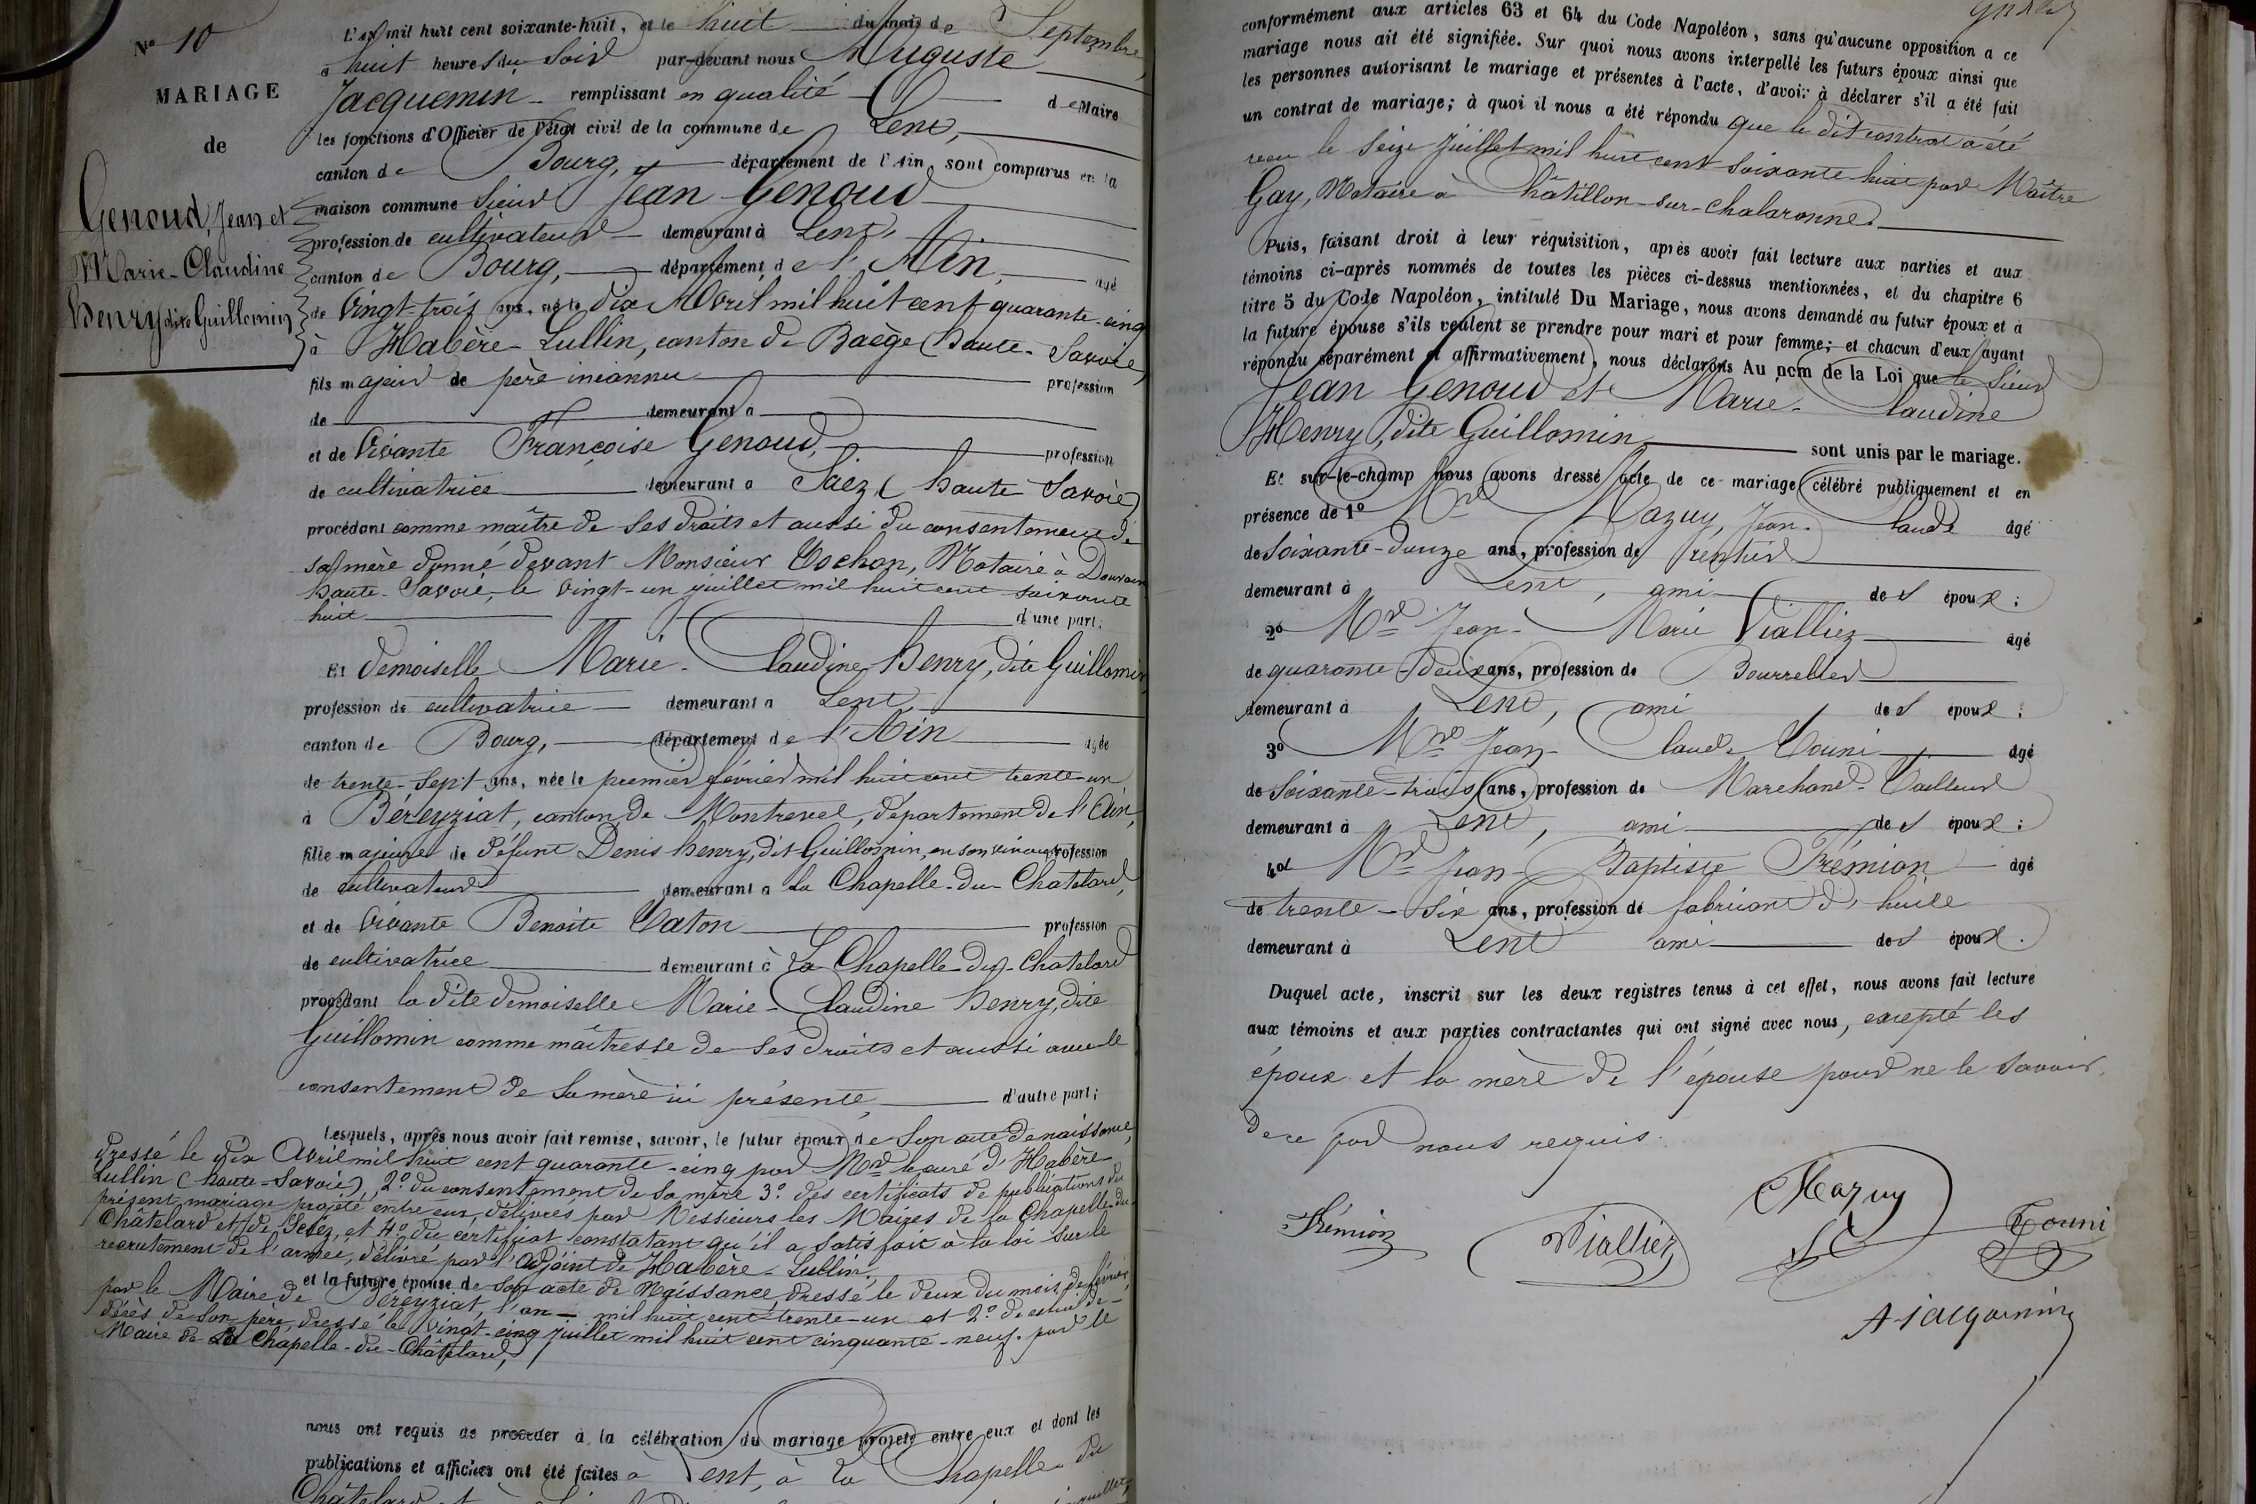 N° 10
MARIAGE
de
Genoud, Jean et
Marie-Claudine
henry dite Guillomin
L'an mil huit cent soixante-huit, et le huit du mois de Septembre,
à huit heures du Soir par-devant nous Auguste
Jacquemin remplissant en qualité de Maire
les fonctions d'Officier de l'état civil de la commune de Lent,
canton de Bourg, département de l'Ain, sont comparus en la
maison commune Sieur Jean Genoud
profession de cultivateur demeurant à Lent,
canton de Bourg, département de l'Ain, agé
de Vingt-trois ans, né le dix Avril mil huit cent quarante-cinq
à Habère-Lullin, canton de Boëge (haute-Savoie)
fils majeur de père inconnu profession
de demeurant à
et de Vivante Françoise Genoud, profession
de cultivatrice demeurant à Saez (haute Savoie)
procédant comme maître de ses droits et aussi du consentement de
sa mère donné devant Monsieur Cochon, Notaire à Douvain
haute-Savoie, le vingt-un juillet mil huit cent soixante
huit d'une part;
Et demoiselle Marie-Claudine henry, dite Guillomin,
profession de cultivatrice demeurant à Lent,
canton de Bourg, département de l'Ain agée
de trente-sept ans, née le premier février mil huit cent trente-un
à Béreyziat, canton de Montrevel, département de l'Ain,
fille majeure de défunt Denis henry, dit Guillomin, en son vivant profession
de cultivateur demeurant à la Chapelle-du-Chatelard,
et de vivante Benoite Vaton profession
de cultivatrice demeurant à La Chapelle-du-Chatelard
procédant la dite demoiselle Marie-Claudine henry, dite
Guillomin comme maîtresse de ses droits et aussi avec le
consentement de sa mère ici présente, d'autre part;
Lesquels, après nous avoir fait remise, savoir, le futur époux de son acte de naissance,
dressé le dix Avril mil huit cent quarante-cinq par Mr le curé d'Habère-
Lullin (haute-Savoie), 2° du consentement de sa mère 3° des certificats de publications du
présent mariage projeté entre eux délivrés par Messieurs les Maires de la Chapelle-du-
Châtelard et de et 4° du certificat constatant qu'il a satisfait à la loi sur le
recrutement de l'armée, délivré par l'adjoint de Habère-Lullin,
et la future épouse de son acte de Naissance dressé le deux du mois de février,
par le Maire de Béreyziat, l'an mil huit cent trente-un et 2° de celui de
décès de son père, dressé le vingt-cinq juillet mil huit cent cinquante-neuf par le
Maire de La Chapelle-du-Châtelard,
nous ont requis de procéder à la célébration du mariage projeté entre eux et dont les
publications et affiches ont été faites à Lent, à La Chapelle-du
Châtelard et à
conformément aux articles 63 et 64 du Code Napoléon, sans qu'aucune opposition a ce
mariage nous ait été signifiée. Sur quoi nous avons interpellé les futurs époux ainsi que
les personnes autorisant le mariage et présentes à l'acte, d'avoir à déclarer s'il a été fait
un contrat de mariage; à quoi il nous a été répondu que le dit contrat a été
reçu le Seize Juillet mil huit cent soixante-huit par Maître
Gay, Notaire à Châtillon-sur-Chalaronne.
Puis, faisant droit à leur réquisition, après avoir fait lecture aux parties et aux
témoins ci-après nommés de toutes les pièces ci-dessus mentionnées, et du chapitre 6
titre 5 du Code Napoléon, intitulé Du Mariage, nous avons demandé au futur époux et à
la future épouse s'ils veulent se prendre pour mari et pour femme; et chacun d'eux ayant
répondu séparément et affirmativement, nous déclarons Au nom de la Loi que le Sieur
Jean Genoud et Marie-Claudine
Henry, dite Guillomin, sont unis par le mariage.
Et sur-le-champ nous avons dressé acte de ce mariage célébré publiquement et en
présence de 1° Mr Mazuy, Jean-Claude âgé
de Soixante-douze ans, profession de rentier
demeurant à Lent, ami des époux;
2° Mr Jean-Marie Vialliez agé
de quarante-deux ans, profession de Bourrelier
demeurant à Lent, ami des époux;
3° Mr Jean-Claude Touni agé
de Soixante-trois ans, profession de Marchand-Tailleur
demeurant à Lent, ami des époux;
4° Mr Jean-Baptiste Frémion agé
de trente-six ans, profession de fabricant d'huile
demeurant à Lent ami des époux.
Duquel acte, inscrit sur les deux registres tenus à cet effet, nous avons fait lecture
aux témoins et aux parties contractantes qui ont signé avec nous, excepté les
époux et la mère de l'épouse pour ne le savoir,
de ce par nous requis.
Mazuy
Frémion Vialliez JC Touni
A Jacquemin